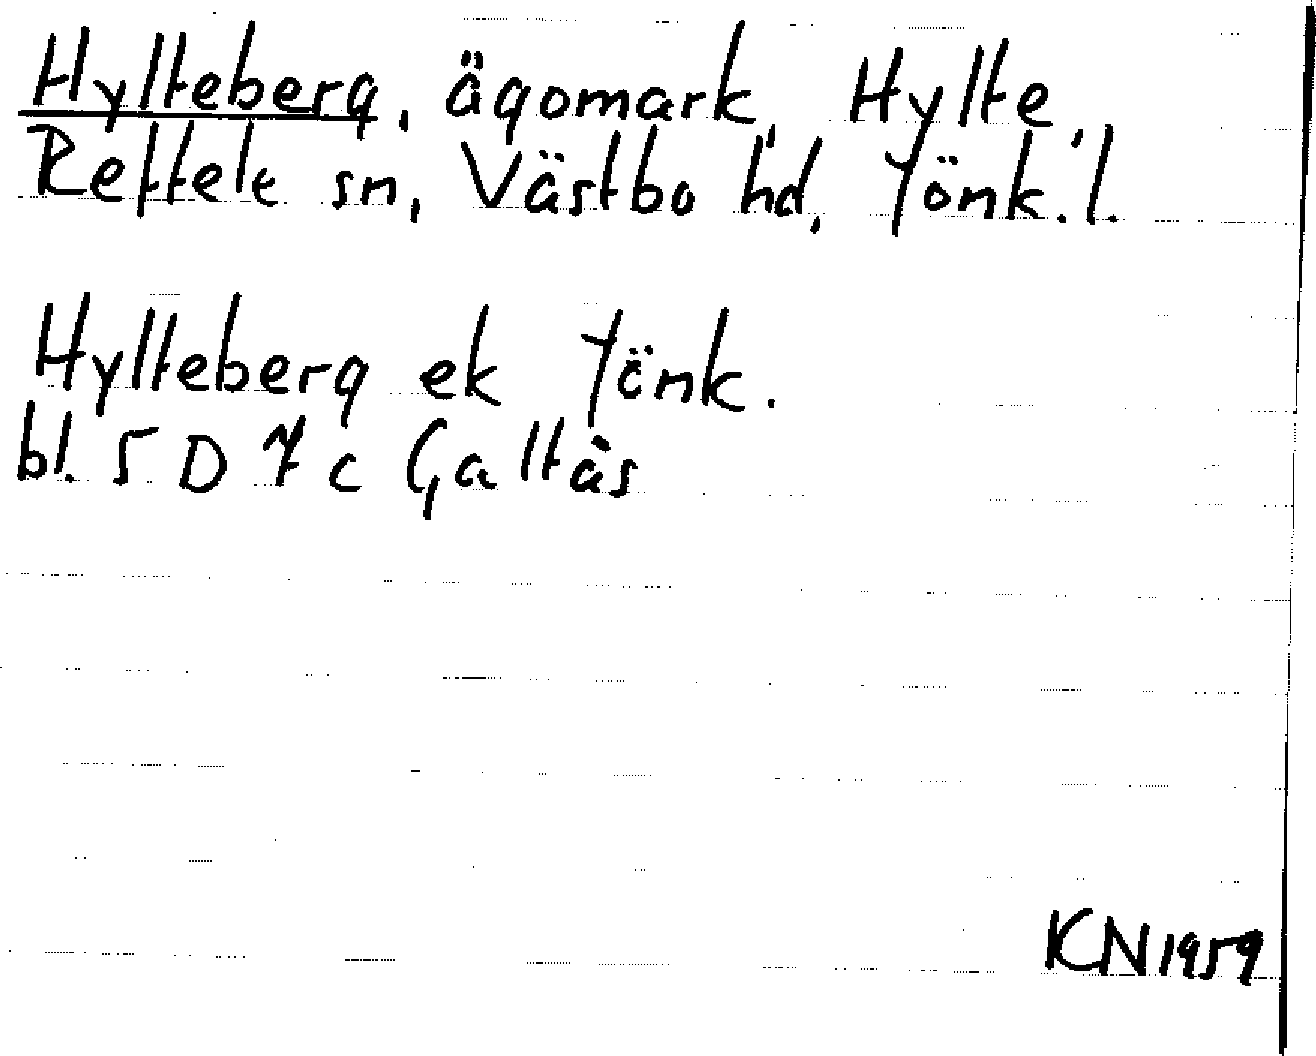 Hylteberg, ägomark, Hylte,
Reftele sn, Västbo hd, Jönk. l.
Hylteberg ek Jönk.
bl. 5 D 7 c Galtås
KN 1959